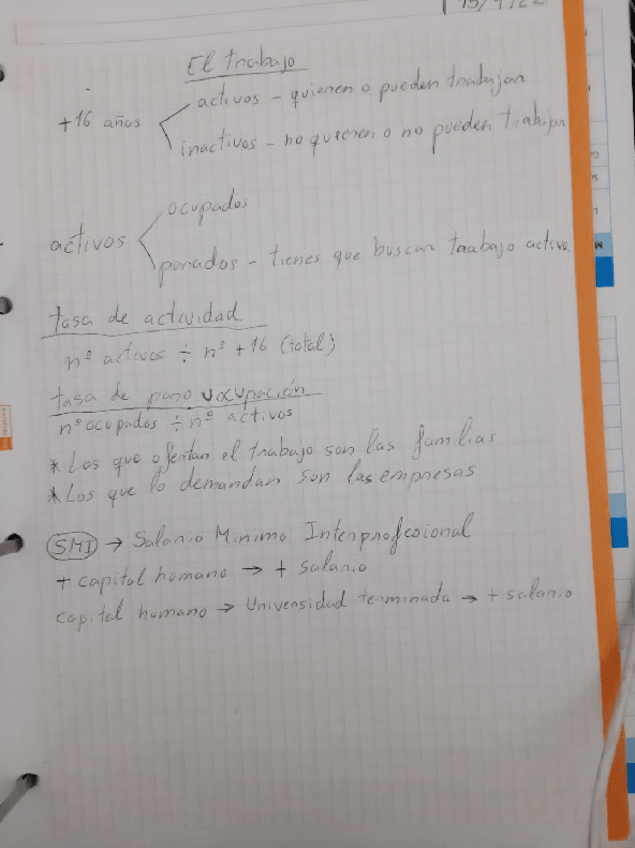 El trabajo
+16 años
activos - quieren o pueden trabajar
inactivos - no quieren o no pueden trabajar
activos
ocupados
parados - tienes que buscar trabajo activa.
tasa de actividad
nº activos ÷ nº +16 (total)
tasa de paro u ocupación
nº ocupados ÷ nº activos
* Los que ofertan el trabajo son las familias
* Los que lo demandan son las empresas
SMI → Salario Mínimo Interprofesional
+ capital humano → + salario
capital humano → Universidad terminada → + salario